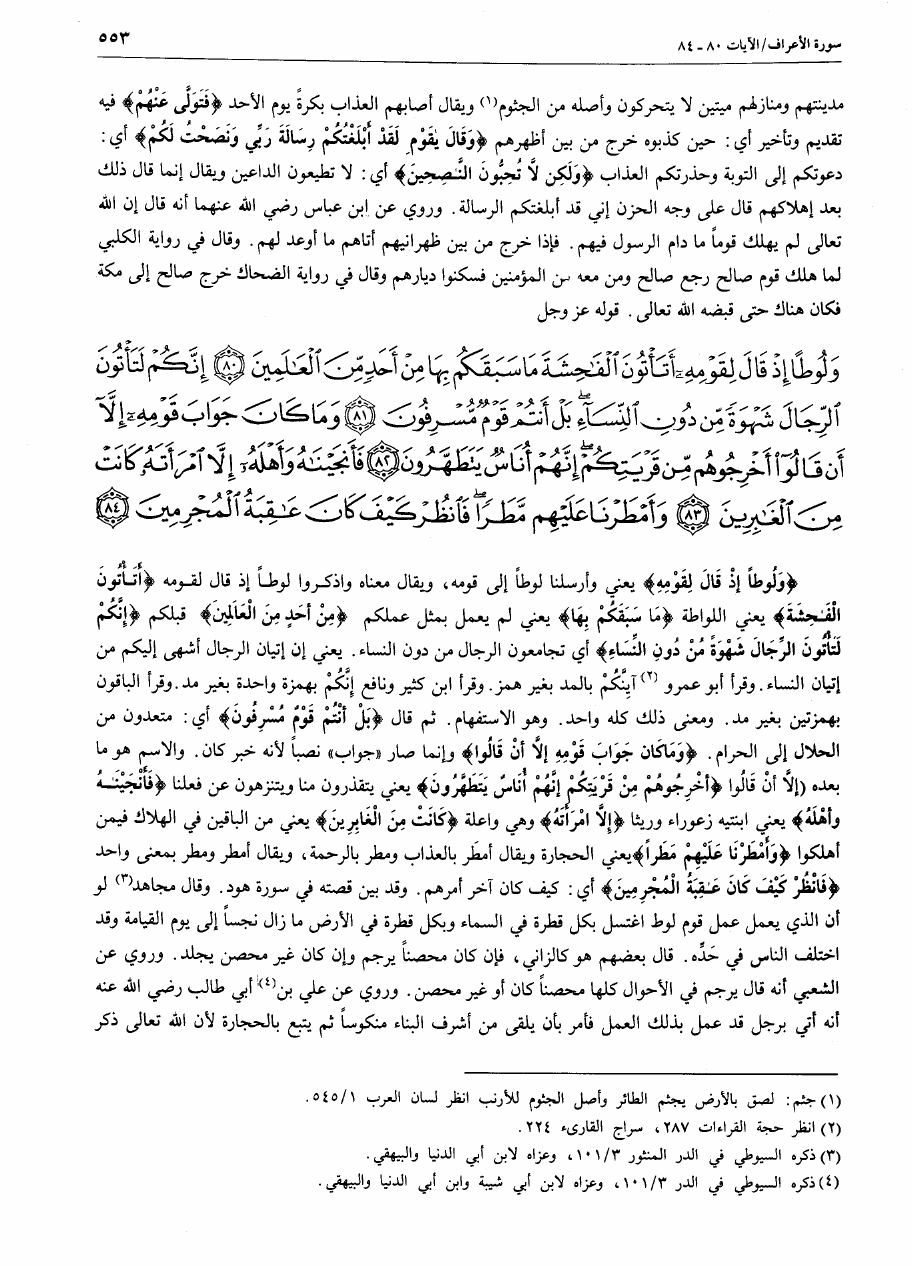 سورة الأعراف/الآيات ٨٠ ـ ٨٤
٥٥٣
مدينتهم ومنازلهم ميتين لا يتحركون وأصله من الجثوم(١) ويقال أصابهم العذاب بكرةً يوم الأحد ﴿فَتَوَلَّى عَنْهُمْ﴾ فيه
تقديم وتأخير أي: حين كذبوه خرج من بين أظهرهم ﴿وَقَالَ يَقَوْمِ لَقَدْ أَبْلَغْتُكُمْ رِسَالَةَ رَبِّي وَنَصَحْتُ لَكُمْ﴾ أي:
دعوتكم إلى التوبة وحذرتكم العذاب ﴿وَلَكِن لَّا تُحِبُّونَ النَّـٰصِحِينَ﴾ أي: لا تطيعون الداعين ويقال إنما قال ذلك
بعد إهلاكهم قال على وجه الحزن إني قد أبلغتكم الرسالة. وروي عن ابن عباس رضي الله عنهما أنه قال إن الله
تعالى لم يهلك قوماً ما دام الرسول فيهم. فإذا خرج من بين ظهرانيهم أتاهم ما أوعد لهم. وقال في رواية الكلبي
لما هلك قوم صالح رجع صالح ومن معه من المؤمنين فسكنوا ديارهم وقال في رواية الضحاك خرج صالح إلى مكة
فكان هناك حتى قبضه الله تعالى. قوله عز وجل
وَلُوطًا إِذْ قَالَ لِقَوْمِهِۦٓ أَتَأْتُونَ ٱلْفَـٰحِشَةَ مَا سَبَقَكُم بِهَا مِنْ أَحَدٍ مِّنَ ٱلْعَـٰلَمِينَ ٨٠ إِنَّكُمْ لَتَأْتُونَ
ٱلرِّجَالَ شَهْوَةً مِّن دُونِ ٱلنِّسَآءِ ۚ بَلْ أَنتُمْ قَوْمٌ مُّسْرِفُونَ ٨١ وَمَا كَانَ جَوَابَ قَوْمِهِۦٓ إِلَّآ
أَن قَالُوٓا۟ أَخْرِجُوهُم مِّن قَرْيَتِكُمْ ۖ إِنَّهُمْ أُنَاسٌ يَتَطَهَّرُونَ ٨٢ فَأَنجَيْنَـٰهُ وَأَهْلَهُۥٓ إِلَّا ٱمْرَأَتَهُۥ كَانَتْ
مِنَ ٱلْغَـٰبِرِينَ ٨٣ وَأَمْطَرْنَا عَلَيْهِم مَّطَرًا ۖ فَٱنظُرْ كَيْفَ كَانَ عَـٰقِبَةُ ٱلْمُجْرِمِينَ ٨٤
﴿وَلُوطاً إِذْ قَالَ لِقَوْمِهِ﴾ يعني وأرسلنا لوطاً إلى قومه، ويقال معناه واذكروا لوطاً إذ قال لقومه ﴿أَتَأْتُونَ
الْفَـٰحِشَةَ﴾ يعني اللواطة ﴿مَا سَبَقَكُمْ بِهَا﴾ يعني لم يعمل بمثل عملكم ﴿مِنْ أَحَدٍ مِنَ الْعَالَمِينَ﴾ قبلكم ﴿إِنَّكُمْ
لَتَأْتُونَ الرِّجَالَ شَهْوَةً مُنْ دُونِ النِّسَاءِ﴾ أي تجامعون الرجال من دون النساء. يعني إن إتيان الرجال أشهى إليكم من
إتيان النساء. وقرأ أبو عمرو (٢) آيِنَّكُمْ بالمد بغير همز. وقرأ ابن كثير ونافع إِنَّكُمْ بهمزة واحدة بغير مد. وقرأ الباقون
بهمزتين بغير مد. ومعنى ذلك كله واحد. وهو الاستفهام. ثم قال ﴿بَلْ أَنْتُمْ قَوْمٌ مُسْرِفُونَ﴾ أي: متعدون من
الحلال إلى الحرام. ﴿وَمَاكَانَ جَوَابَ قَوْمِهِ إِلَّا أَنْ قَالُوا﴾ وإنما صار «جواب» نصباً لأنه خبر كان. والاسم هو ما
بعده (إِلَّا أَنْ قَالُوا ﴿أَخْرِجُوهُمْ مِنْ قَرْيَتِكُمْ إِنَّهُمْ أُنَاسٌ يَتَطَهَّرُونَ﴾ يعني يتقذرون منا ويتنزهون عن فعلنا ﴿فَأَنْجَيْنَـٰهُ
وأهْلَهُ﴾ يعني ابنتيه زعوراء وريثا ﴿إِلَّا امْرَأَتَهُ﴾ وهي واعلة ﴿كَانَتْ مِنَ الْغَابِرِينَ﴾ يعني من الباقين في الهلاك فيمن
أهلكوا ﴿وَأَمْطَرْنَا عَلَيْهِمْ مَطَراً﴾يعني الحجارة ويقال أمطر بالعذاب ومطر بالرحمة، ويقال أمطر ومطر بمعنى واحد
﴿فَانْظُرْ كَيْفَ كَانَ عَـٰقِبَةُ الْمُجْرِمِينَ﴾ أي: كيف كان آخر أمرهم. وقد بين قصته في سورة هود. وقال مجاهد(٣) لو
أن الذي يعمل عمل قوم لوط اغتسل بكل قطرة في السماء وبكل قطرة في الأرض ما زال نجساً إلى يوم القيامة وقد
اختلف الناس في حَدِّه. قال بعضهم هو كالزاني، فإن كان محصناً يرجم وإن كان غير محصن يجلد. وروي عن
الشعبي أنه قال يرجم في الأحوال كلها محصناً كان أو غير محصن. وروي عن علي بن(٤) أبي طالب رضي الله عنه
أنه أتي برجل قد عمل بذلك العمل فأمر بأن يلقى من أشرف البناء منكوساً ثم يتبع بالحجارة لأن الله تعالى ذكر
(١) جثم: لصق بالأرض يجثم الطائر وأصل الجثوم للأرنب انظر لسان العرب ٥٤٥/١.
(٢) انظر حجة القراءات ٢٨٧، سراج القارىء ٢٢٤.
(٣) ذكره السيوطي في الدر المنثور ١٠١/٣، وعزاه لابن أبي الدنيا والبيهقي.
(٤) ذكره السيوطي في الدر ١٠١/٣، وعزاه لابن أبي شيبة وابن أبي الدنيا والبيهقي.